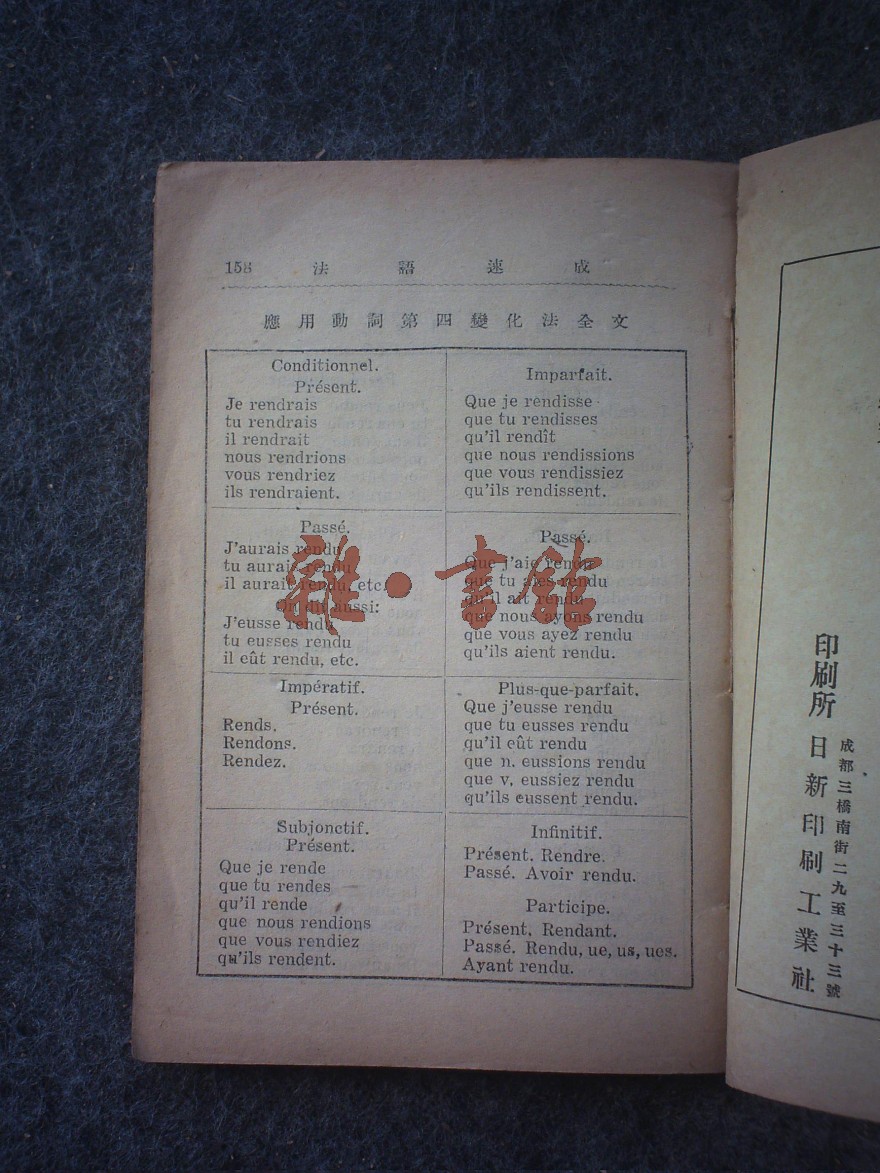 158 法語速成
應用動詞第四變化法全文
Conditionnel.
Présent.
Je rendrais
tu rendrais
il rendrait
nous rendrions
vous rendriez
ils rendraient.
Passé.
J'aurais rendu
tu aurais rendu
il aurait rendu, etc.
On dit aussi:
J'eusse rendu
tu eusses rendu
il eût rendu, etc.
Impératif.
Présent.
Rends.
Rendons.
Rendez.
Subjonctif.
Présent.
Que je rende
que tu rendes
qu'il rende
que nous rendions
que vous rendiez
qu'ils rendent.
Imparfait.
Que je rendisse
que tu rendisses
qu'il rendît
que nous rendissions
que vous rendissiez
qu'ils rendissent.
Passé.
Que j'aie rendu
que tu aies rendu
qu'il ait rendu
que nous ayons rendu
que vous ayez rendu
qu'ils aient rendu.
Plus-que-parfait.
Que j'eusse rendu
que tu eusses rendu
qu'il eût rendu
que n. eussions rendu
que v. eussiez rendu
qu'ils eussent rendu.
Infinitif.
Présent. Rendre.
Passé. Avoir rendu.
Participe.
Présent. Rendant.
Passé. Rendu, ue, us, ues.
Ayant rendu.
雜·書館
成都三橋南街二九至三十三號
印刷所 日新印刷工業社